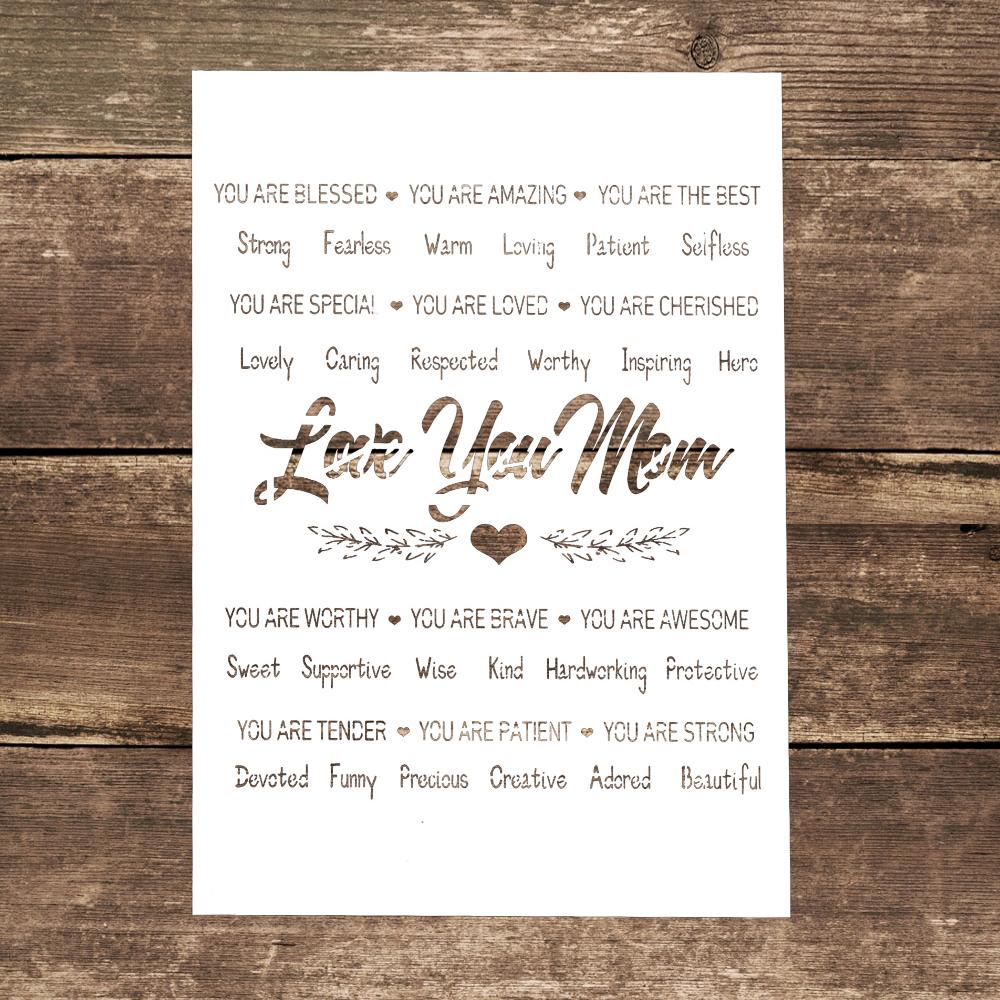 YOU ARE BLESSED ♥ YOU ARE AMAZING ♥ YOU ARE THE BEST
Strong Fearless Warm Loving Patient Selfless
YOU ARE SPECIAL ♥ YOU ARE LOVED ♥ YOU ARE CHERISHED
Lovely Caring Respected Worthy Inspiring Hero
Love You Mom
YOU ARE WORTHY ♥ YOU ARE BRAVE ♥ YOU ARE AWESOME
Sweet Supportive Wise Kind Hardworking Protective
YOU ARE TENDER ♥ YOU ARE PATIENT ♥ YOU ARE STRONG
Devoted Funny Precious Creative Adored Beautiful